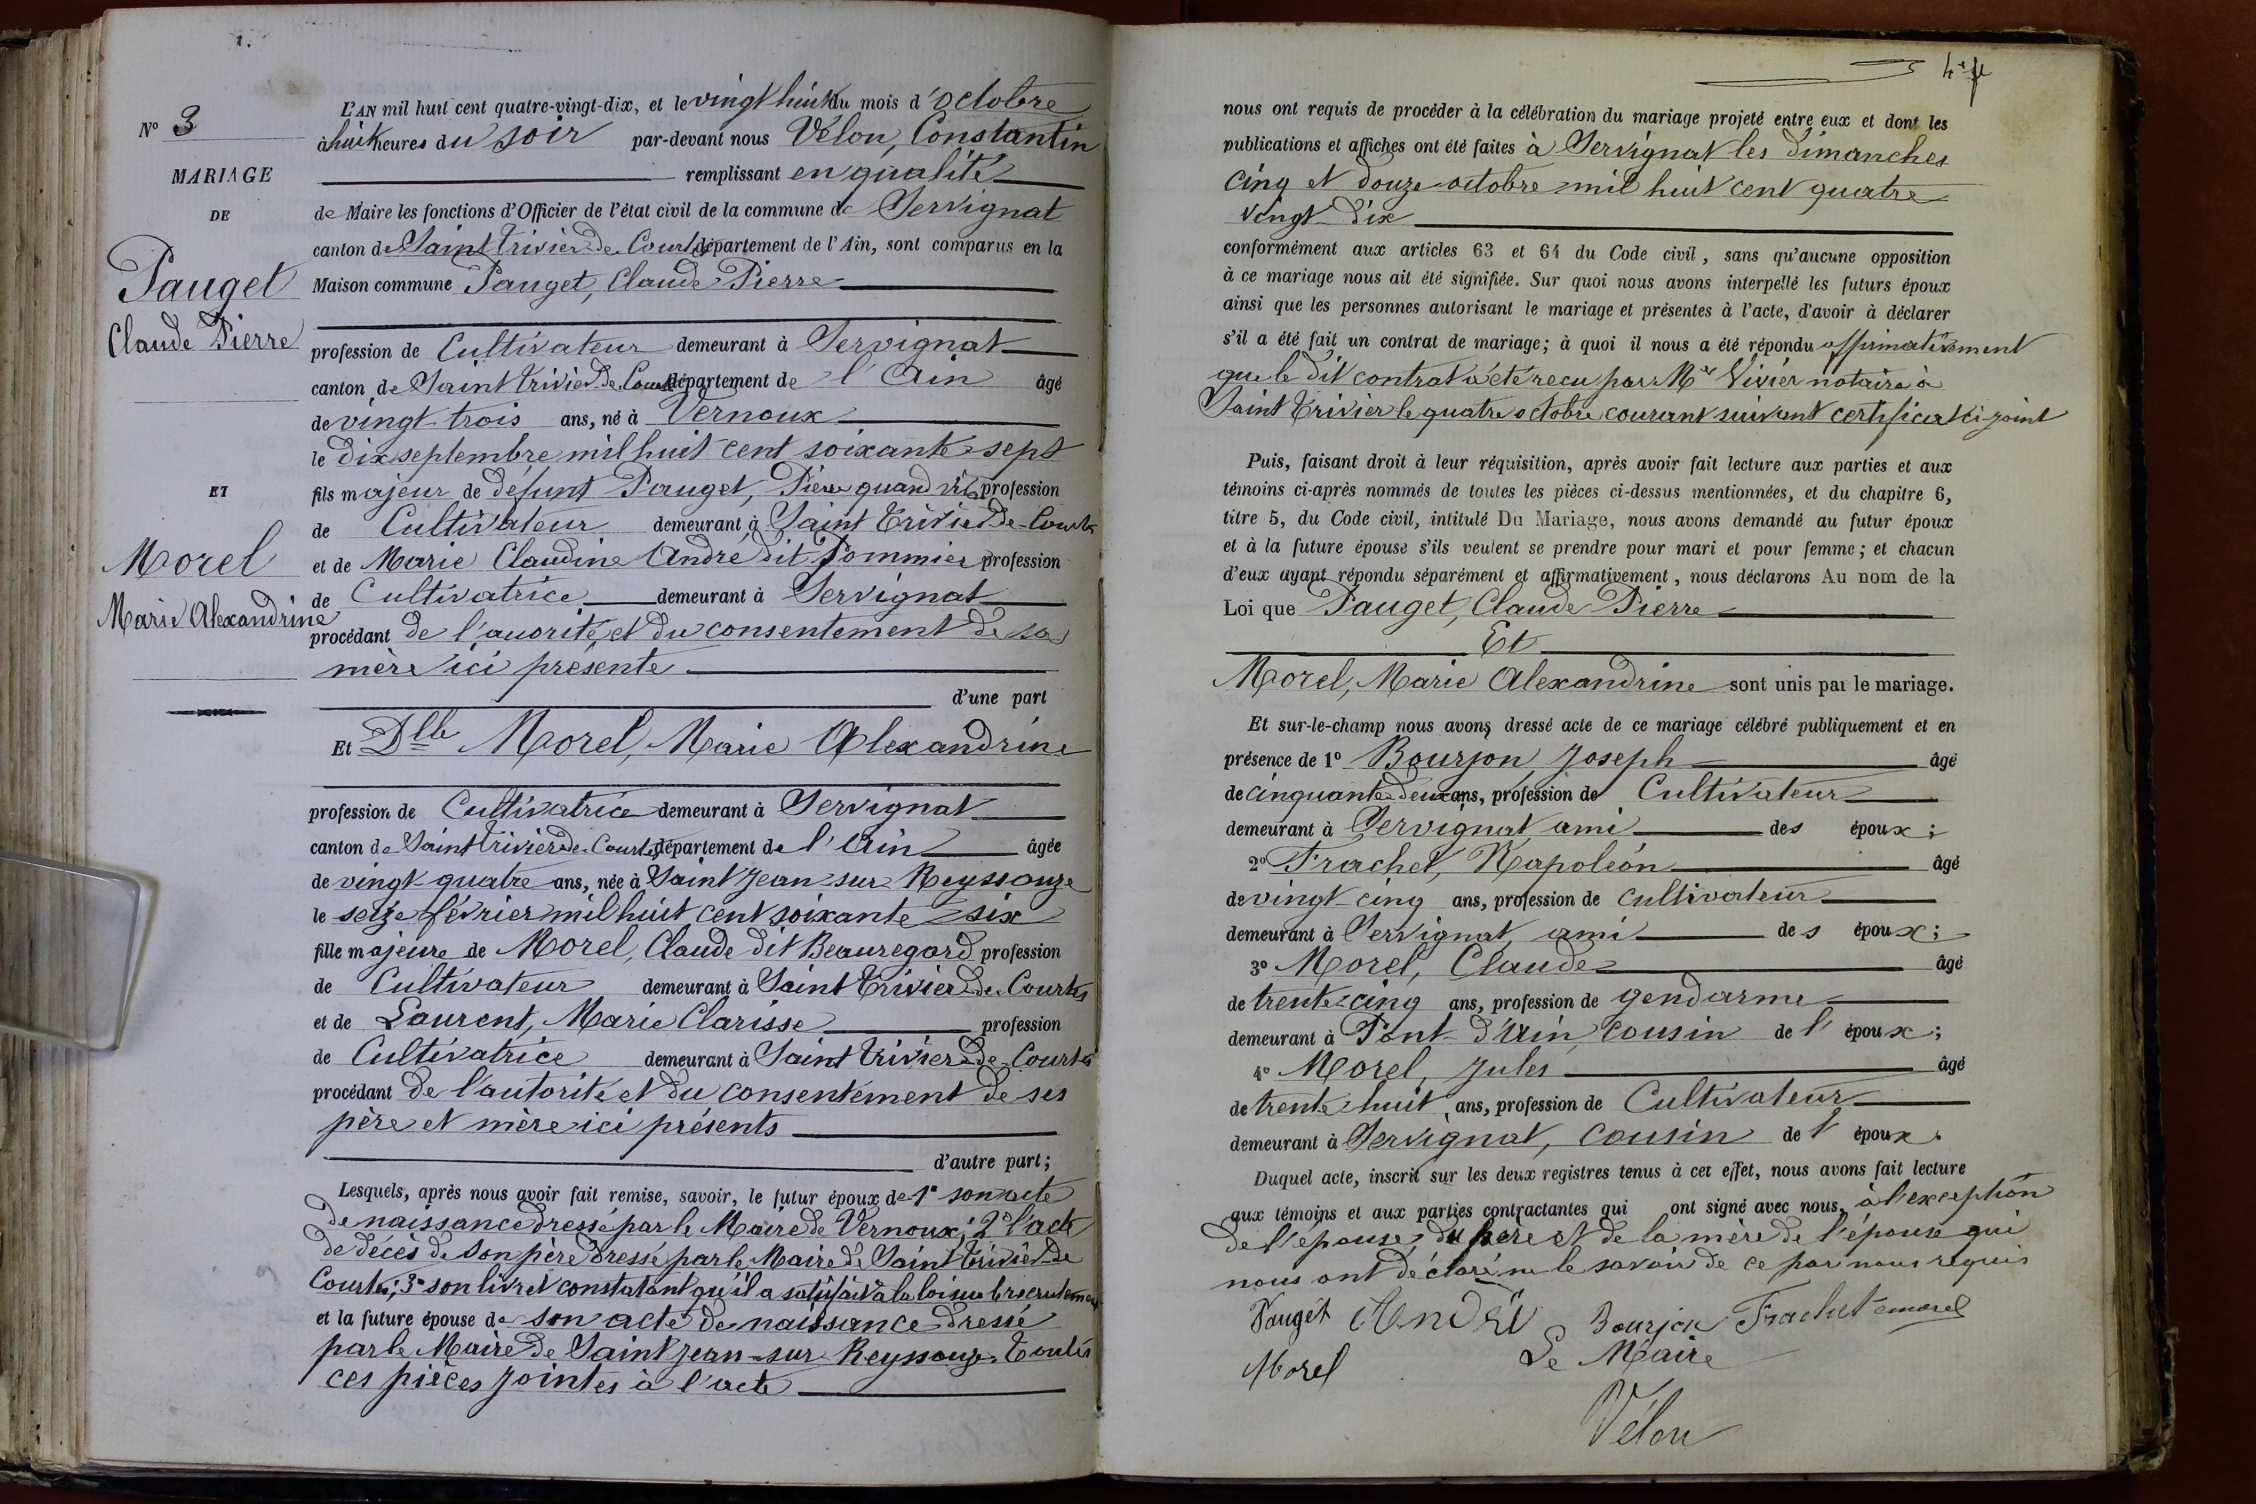 N° 3
MARIAGE
DE
Pauget
Claude Pierre
ET
Morel
Marie Alexandrine
L'AN mil huit cent quatre-vingt-dix, et le vingt huit du mois d'octobre
à huit heures du soir par-devant nous Vélon, Constantin
remplissant en qualité
de Maire les fonctions d'Officier de l'état civil de la commune de Servignat
canton de Saint Trivier de Courtes département de l'Ain, sont comparus en la
Maison commune Pauget, Claude Pierre
profession de Cultivateur demeurant à Servignat
canton de Saint Trivier de Courtes département de l'Ain âgé
de vingt trois ans, né à Vernoux
le dix septembre mil huit cent soixante sept
fils majeur de défunt Pauget, Pierre quand vivait profession
de Cultivateur demeurant à Saint Trivier de Courtes
et de Marie Claudine André dit Pommier profession
de Cultivatrice demeurant à Servignat
procédant de l'auorité et du consentement de sa
mère ici présente
d'une part
Et Dlle Morel, Marie Alexandrine
profession de Cultivatrice demeurant à Servignat
canton de Saint Trivier de Courtes département de l'Ain âgée
de vingt-quatre ans, née à Saint Jean-sur Reyssouze
le seize février mil huit cent soixante six
fille majeure de Morel, Claude dit Beauregard profession
de Cultivateur demeurant à Saint Trivier de Courtes
et de Laurent, Marie Clarisse profession
de Cultivatrice demeurant à Saint Trivier de Courtes
procédant de l'autorité et du consentement de ses
père et mère ici présents
d'autre part;
Lesquels, après nous avoir fait remise, savoir, le futur époux de 1° son acte
de naissance dressé par le Maire de Vernoux; 2° l'acte
de décès de son père dressé par le Maire de Saint Trivier de
Courtes; 3° son livret constatant qu'il a satisfait à la loi sur le recrutement
et la future épouse de son acte de naissance dressé
par le Maire de Saint Jean-sur-Reyssouze. Toutes
ces pièces jointes à l'acte
nous ont requis de procéder à la célébration du mariage projeté entre eux et dont les
publications et affiches ont été faites à Servignat les dimanches
cinq et douze octobre mil huit cent quatre
vingt dix
conformément aux articles 63 et 64 du Code civil, sans qu'aucune opposition
à ce mariage nous ait été signifiée. Sur quoi nous avons interpellé les futurs époux
ainsi que les personnes autorisant le mariage et présentes à l'acte, d'avoir à déclarer
s'il a été fait un contrat de mariage; à quoi il nous a été répondu affirmativement
que le dit contrat a été recu par Me Vivier notaire à
Saint Trivier le quatre octobre courant suivant certificat ci-joint
Puis, faisant droit à leur réquisition, après avoir fait lecture aux parties et aux
témoins ci-après nommés de toutes les pièces ci-dessus mentionnées, et du chapitre 6,
titre 5, du Code civil, intitulé Du Mariage, nous avons demandé au futur époux
et à la future épouse s'ils veulent se prendre pour mari et pour femme; et chacun
d'eux ayant répondu séparément et affirmativement, nous déclarons Au nom de la
Loi que Pauget, Claude Pierre
Et
Morel, Marie Alexandrine sont unis par le mariage.
Et sur-le-champ nous avons dressé acte de ce mariage célébré publiquement et en
présence de 1° Bourjon Joseph âgé
de cinquante deux ans, profession de Cultivateur
demeurant à Servignat ami des époux;
2° Frachet, Napoléon âgé
de vingt-cinq ans, profession de cultivateur
demeurant à Servignat ami des époux;
3° Morel, Claude âgé
de trente cinq ans, profession de gendarme
demeurant à Pont-d'Ain, cousin de l'époux;
4° Morel, Jules âgé
de trente huit ans, profession de Cultivateur
demeurant à Servignat, cousin de l'époux.
Duquel acte, inscrit sur les deux registres tenus à cet effet, nous avons fait lecture
aux témoins et aux parties contractantes qui ont signé avec nous, à l'exception
de l'épouse, du père et de la mère de l'épouse qui
nous ont déclaré ne le savoir de ce par nous requis
Pauget André Bourjon Frachet morel
Morel Le Maire
Vélon